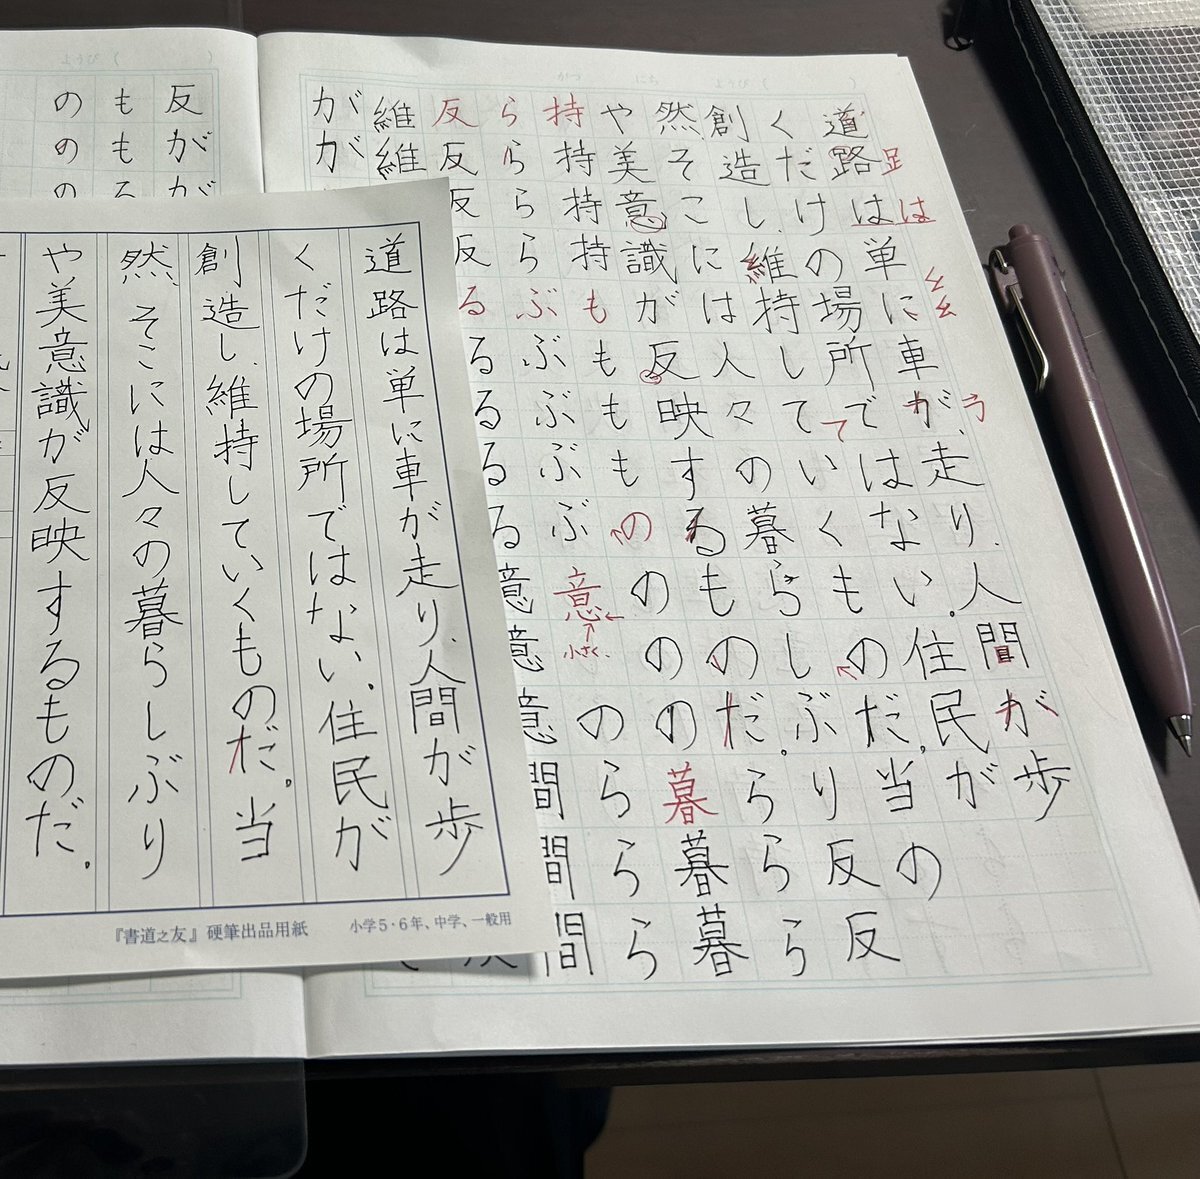 がつ にち ようび ( )
足
は
糸
う
道路は単に車が走り、人間が歩
くだけの場所ではない。住民が
創造し、維持していくものだ。当の
て
然、そこには人々の暮らしぶり反反
や美意識が反映するものだ。ららら
持持持持もももものののの暮暮暮
ららららぶぶぶぶぶ意のららら
小さく
反反反反るるるるる意意意間間間
維維
がが
ようび ( )
反がが
ももる
ののの
道路は単に車が走り、人間が歩
くだけの場所ではない。住民が
創造し、維持していくものだ。当
然、そこには人々の暮らしぶり
や美意識が反映するものだ。
『書道之友』硬筆出品用紙 小学5・6年、中学、一般用